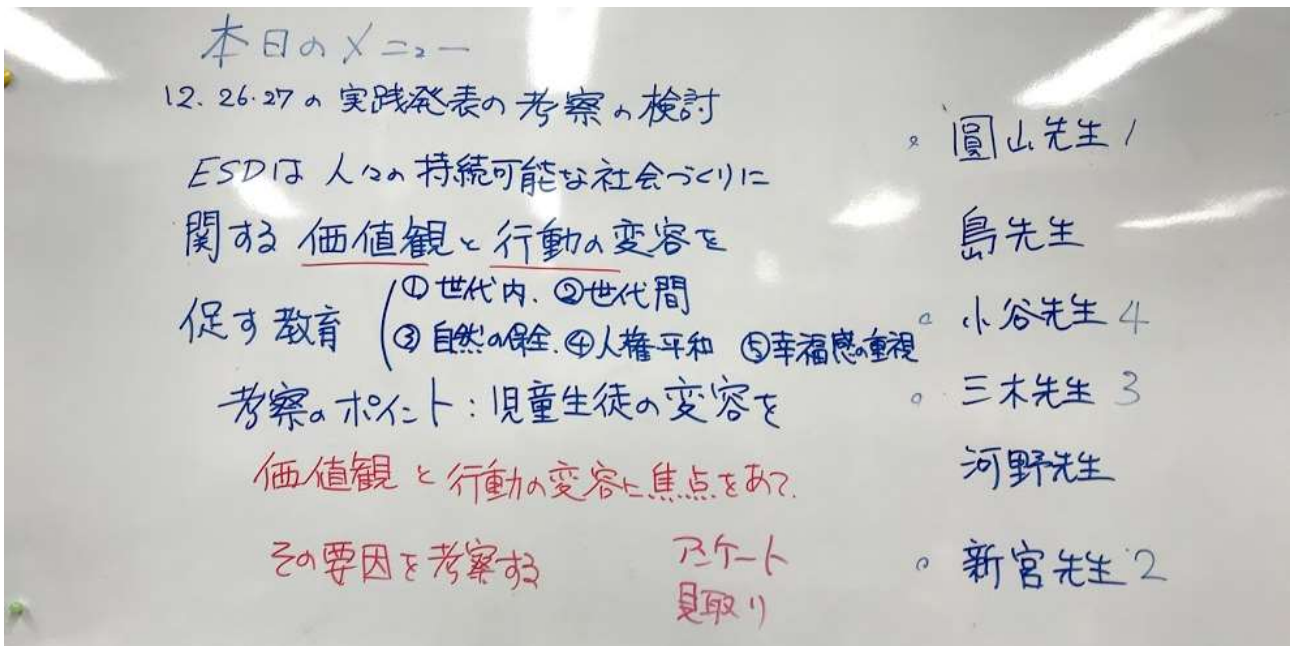 本日のメニュー
12.26.27の実践発表の考察の検討
ESDは人々の持続可能な社会づくりに
関する価値観と行動の変容を
促す教育
①世代内.②世代間
③自然の保全.④人権平和 ⑤幸福感の重視
考察のポイント:児童生徒の変容を
価値観と行動の変容に焦点をあて、
その要因を考察する
アンケート
見取り
圓山先生 1
島先生
小谷先生 4
三木先生 3
河野先生
新宮先生 2